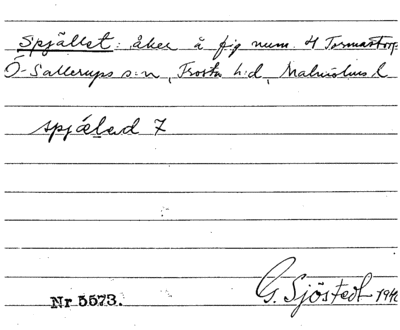 Spjället: åker å fig num. 4 Tormastorp
Ö-Sallerups s:n, Frosta h:d, Malmöhus l
spjälad 7
Nr 5573. G. Sjöstedt 194